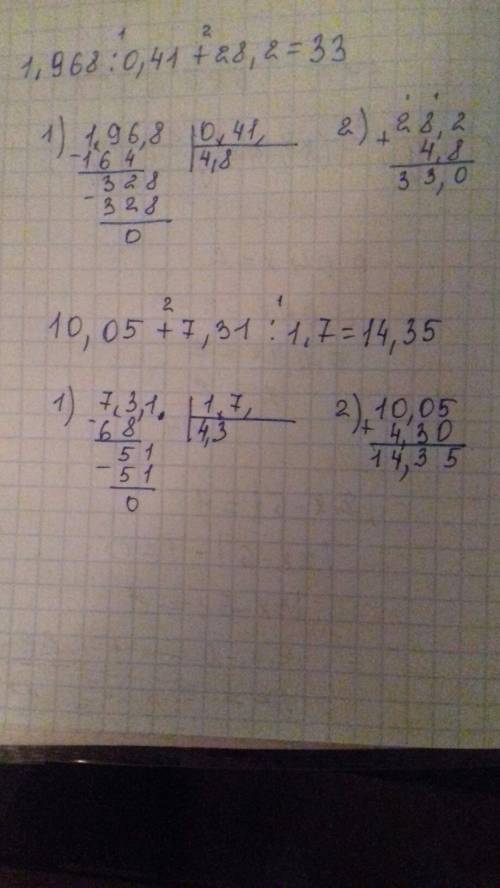 1 2
1,968:0,41+28,2=33
1) 1,96,8 0,41, 2) 28,2
-164 4,8 + 4,8
328 33,0
-328
0
2 1
10,05+7,31:1,7=14,35
1) 7,3,1 1,7, 2) 10,05
-68 4,3 + 4,30
51 14,35
-51
0